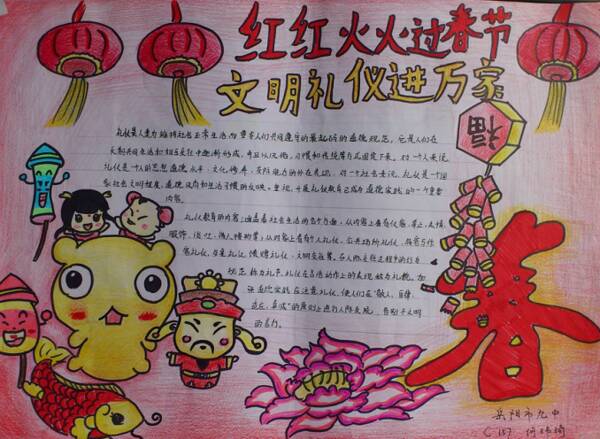 红红火火过春节
文明礼仪进万家
福
礼仪是人类为维持社会正常生活而要求人们共同遵守的最起码的道德规范，它是人们在
长期共同生活和相互交往中逐渐形成，并且以风俗、习惯和传统等方式固定下来。对一个人来说，
礼仪是一个人的思想道德水平、文化修养、交际能力的外在表现，对一个社会来说，礼仪是一个国
家社会文明程度、道德风尚和生活习惯的反映。重视、开展礼仪教育已成为道德实践的一个重要
内容。
礼仪教育的内容涵盖着社会生活的各个方面。从内容上看有仪容、举止、表情、
服饰、谈吐、待人接物等；从对象上看有个人礼仪、公共场所礼仪、待客与作
客礼仪、餐桌礼仪、馈赠礼仪、文明交往等。在人际交往过程中的行为
规范称为礼节，礼仪在言语动作上的表现称为礼貌。加
强道德实践应注意礼仪，使人们在“敬人、自律、
适度、真诚”的原则上进行人际交往，告别不文明
的言行。
春
岳阳市九中